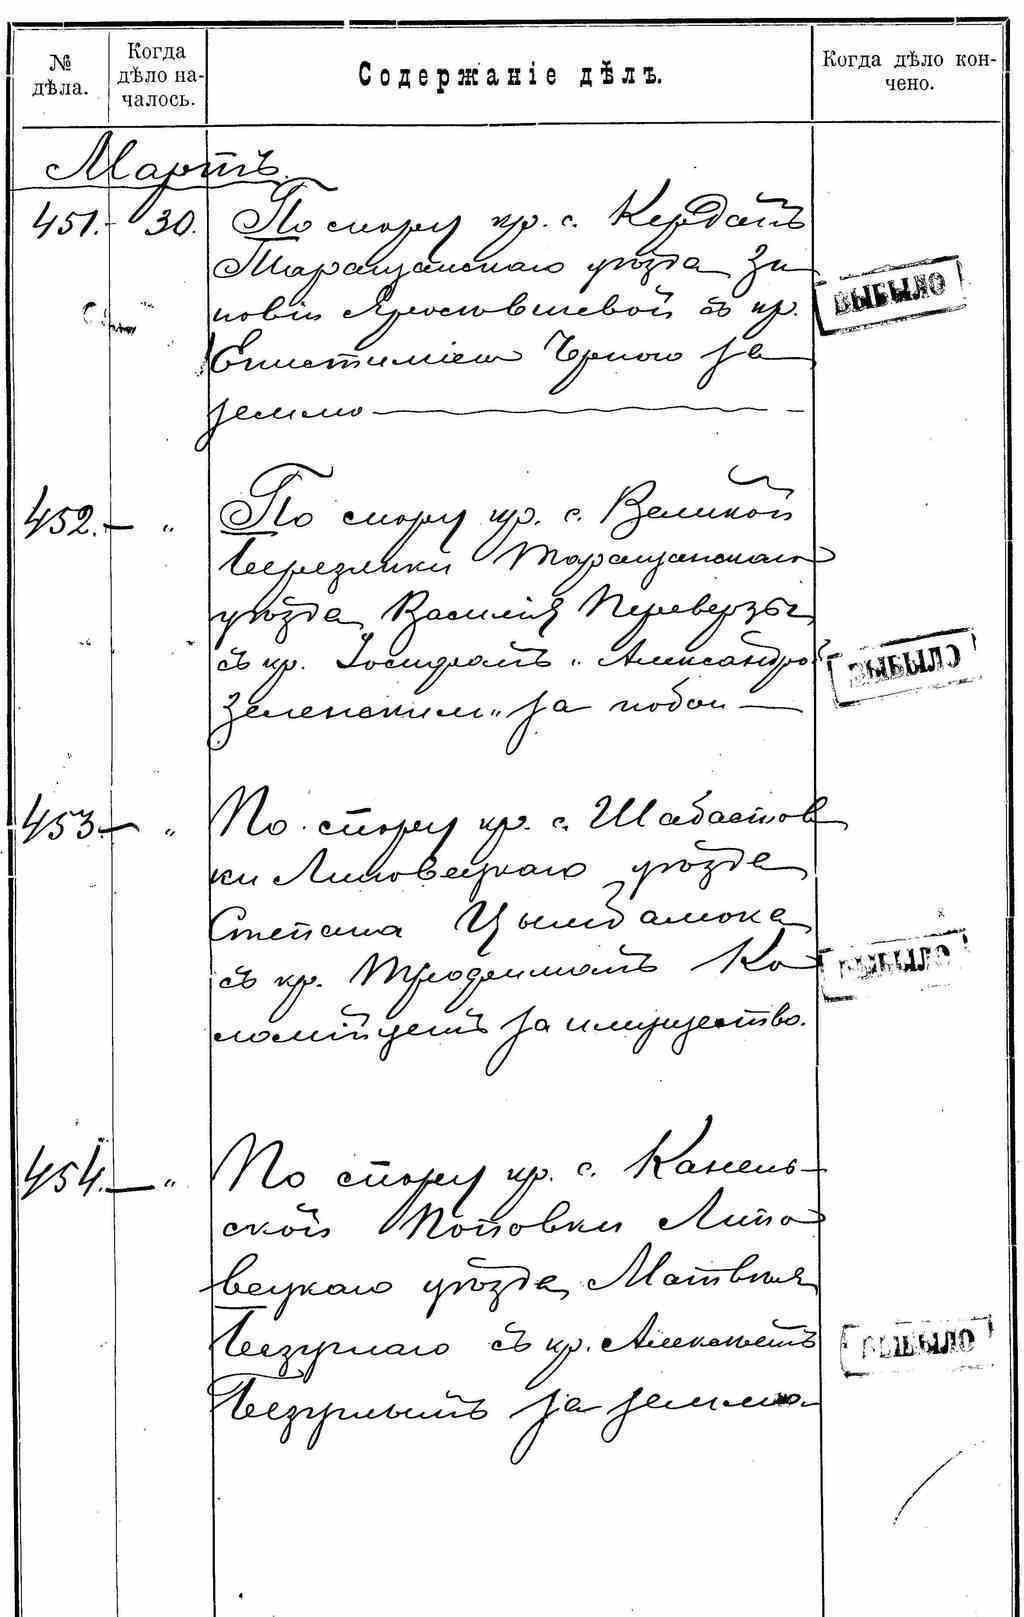 № дѣла.
Когда дѣло на-
чалось.
Содержаніе дѣлъ.
Когда дѣло кон-
чено.
Мартъ.
451.- 30. По спору кр. с. Кердатъ
Таращанскаго уѣзда Зи
новіи Ярославшевой съ кр.
Епистиміею Чорною за
землю
ВЫБЫЛО
452.- „ По спору кр. с. Великой
Березянки Таращанскаго
уѣзда Василія Перeверзы
съ кр. Іосифомъ и Александро
Зеленским и за побои
ВЫБЫЛО
453.- „ По спору кр. с. Шабастов
ки Липовецкаго уѣзда
Степана Цымбалюка
съ кр. Трофимомъ Ко
ломійцемъ за имущество.
ВЫБЫЛО
454.- „ По спору кр. с. Канель-
ской Поповки Липо
вецкаго уѣзда Матвѣя
Безуглаго съ кр. Алексѣемъ
Безуглымъ за землю
ВЫБЫЛО